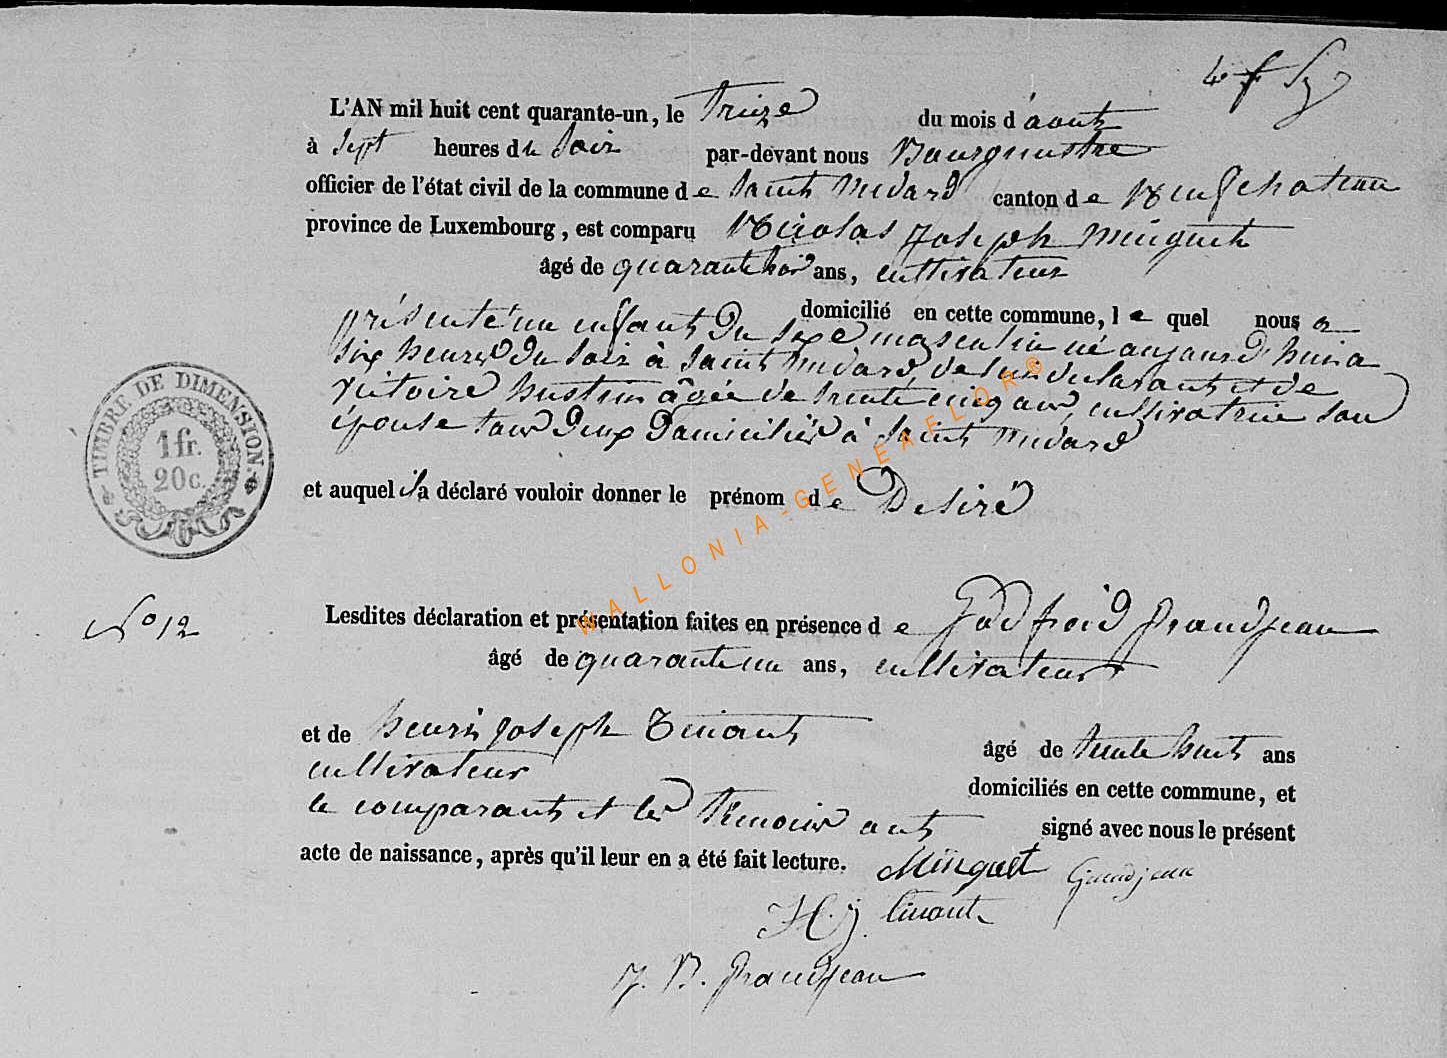 L'AN mil huit cent quarante-un, le treize du mois d'aout
à sept heures du soir par-devant nous Bourgmestre
officier de l'état civil de la commune de Saint Médard canton de Neufchateau
province de Luxembourg, est comparu Nicolas Joseph Minguet
âgé de quarante trois ans, cultivateur
domicilié en cette commune, le quel nous a
présenté un enfant du sexe masculin né aujourd'hui a
six heures du soir à Saint Médard de lui déclarant et de
Victoire hustin âgée de trente cinq ans, cultivatrice son
épouse tous deux domiciliés à Saint Médard
et auquel il a déclaré vouloir donner le prénom de Desiré
TIMBRE DE DIMENSION.
1 fr.
20 c.
WALLONIA-GENEAFLOR®
N° 12
Lesdites déclaration et présentation faites en présence de Godfroid Grandjean
âgé de quarante un ans, cultivateur
et de henri joseph Tinant âgé de trente huit ans
cultivateur domiciliés en cette commune, et
le comparant et les témoins ont signé avec nous le présent
acte de naissance, après qu'il leur en a été fait lecture. Minguet Grandjean
H. j. tinant
J. B. Grandjean